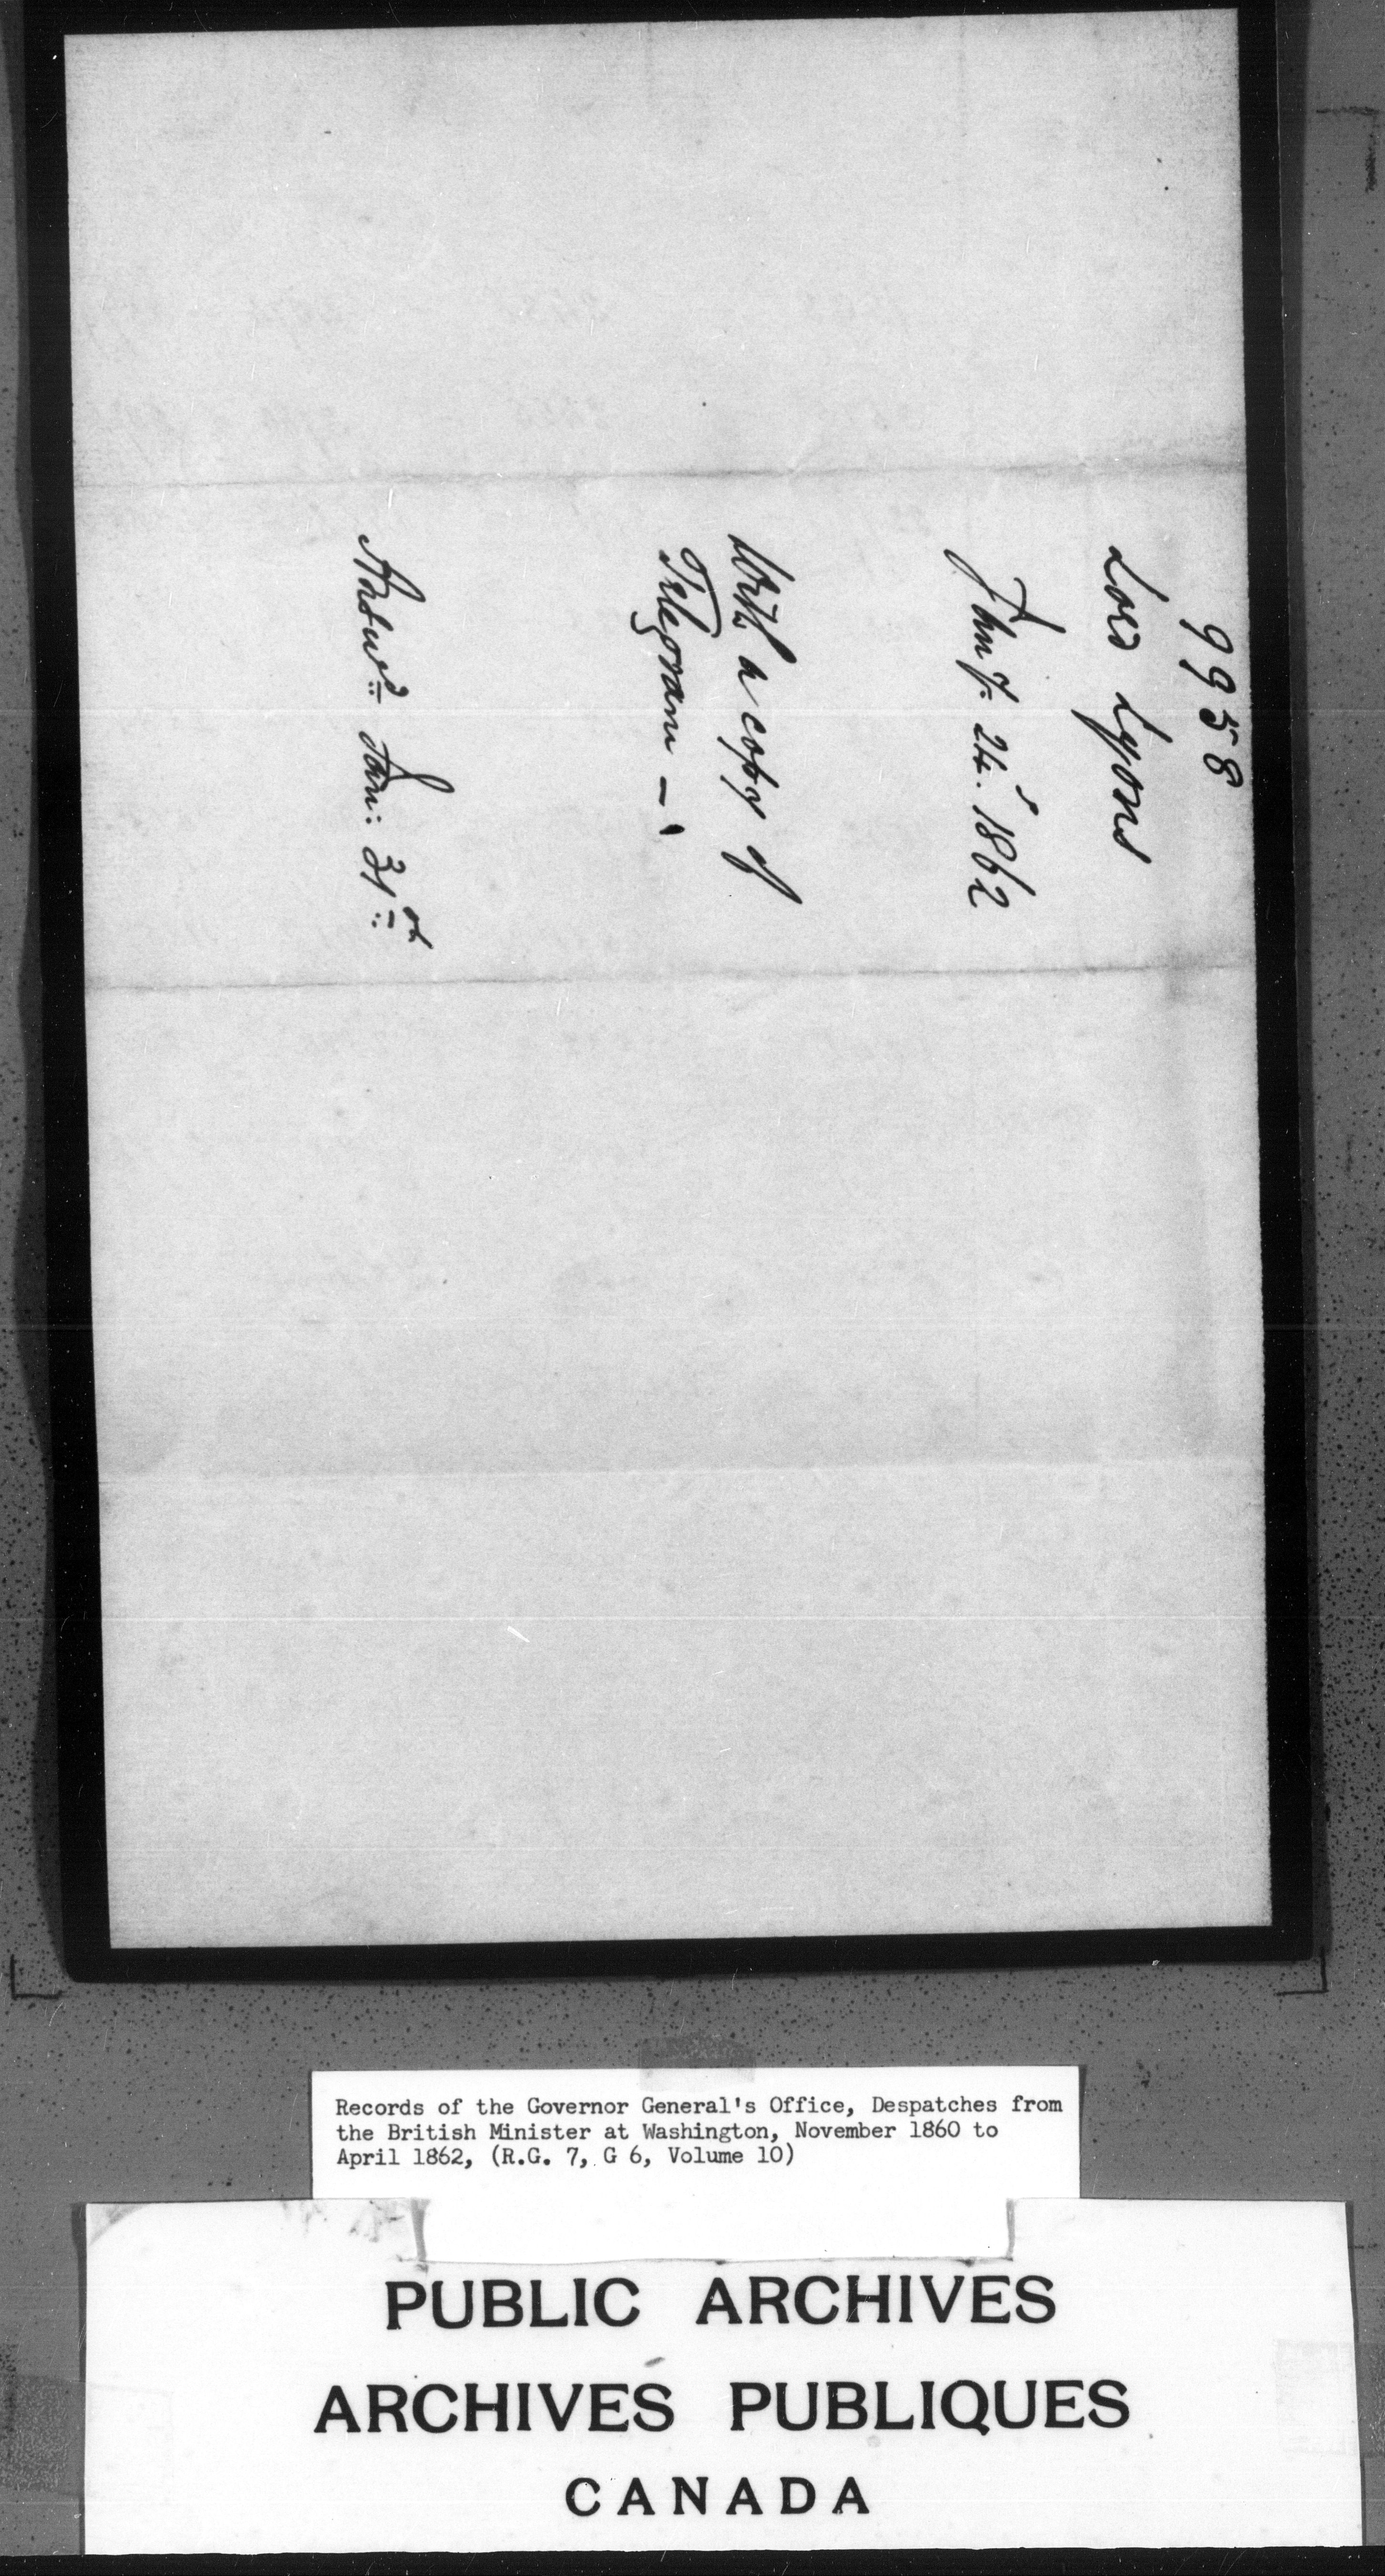 9958
Lord Lyons
Jany. 24. 1862
With a copy of
Telegram —
Answd. Jan: 31st
Records of the Governor General's Office, Despatches from
the British Minister at Washington, November 1860 to
April 1862, (R.G. 7, G 6, Volume 10)
PUBLIC ARCHIVES
ARCHIVES PUBLIQUES
CANADA